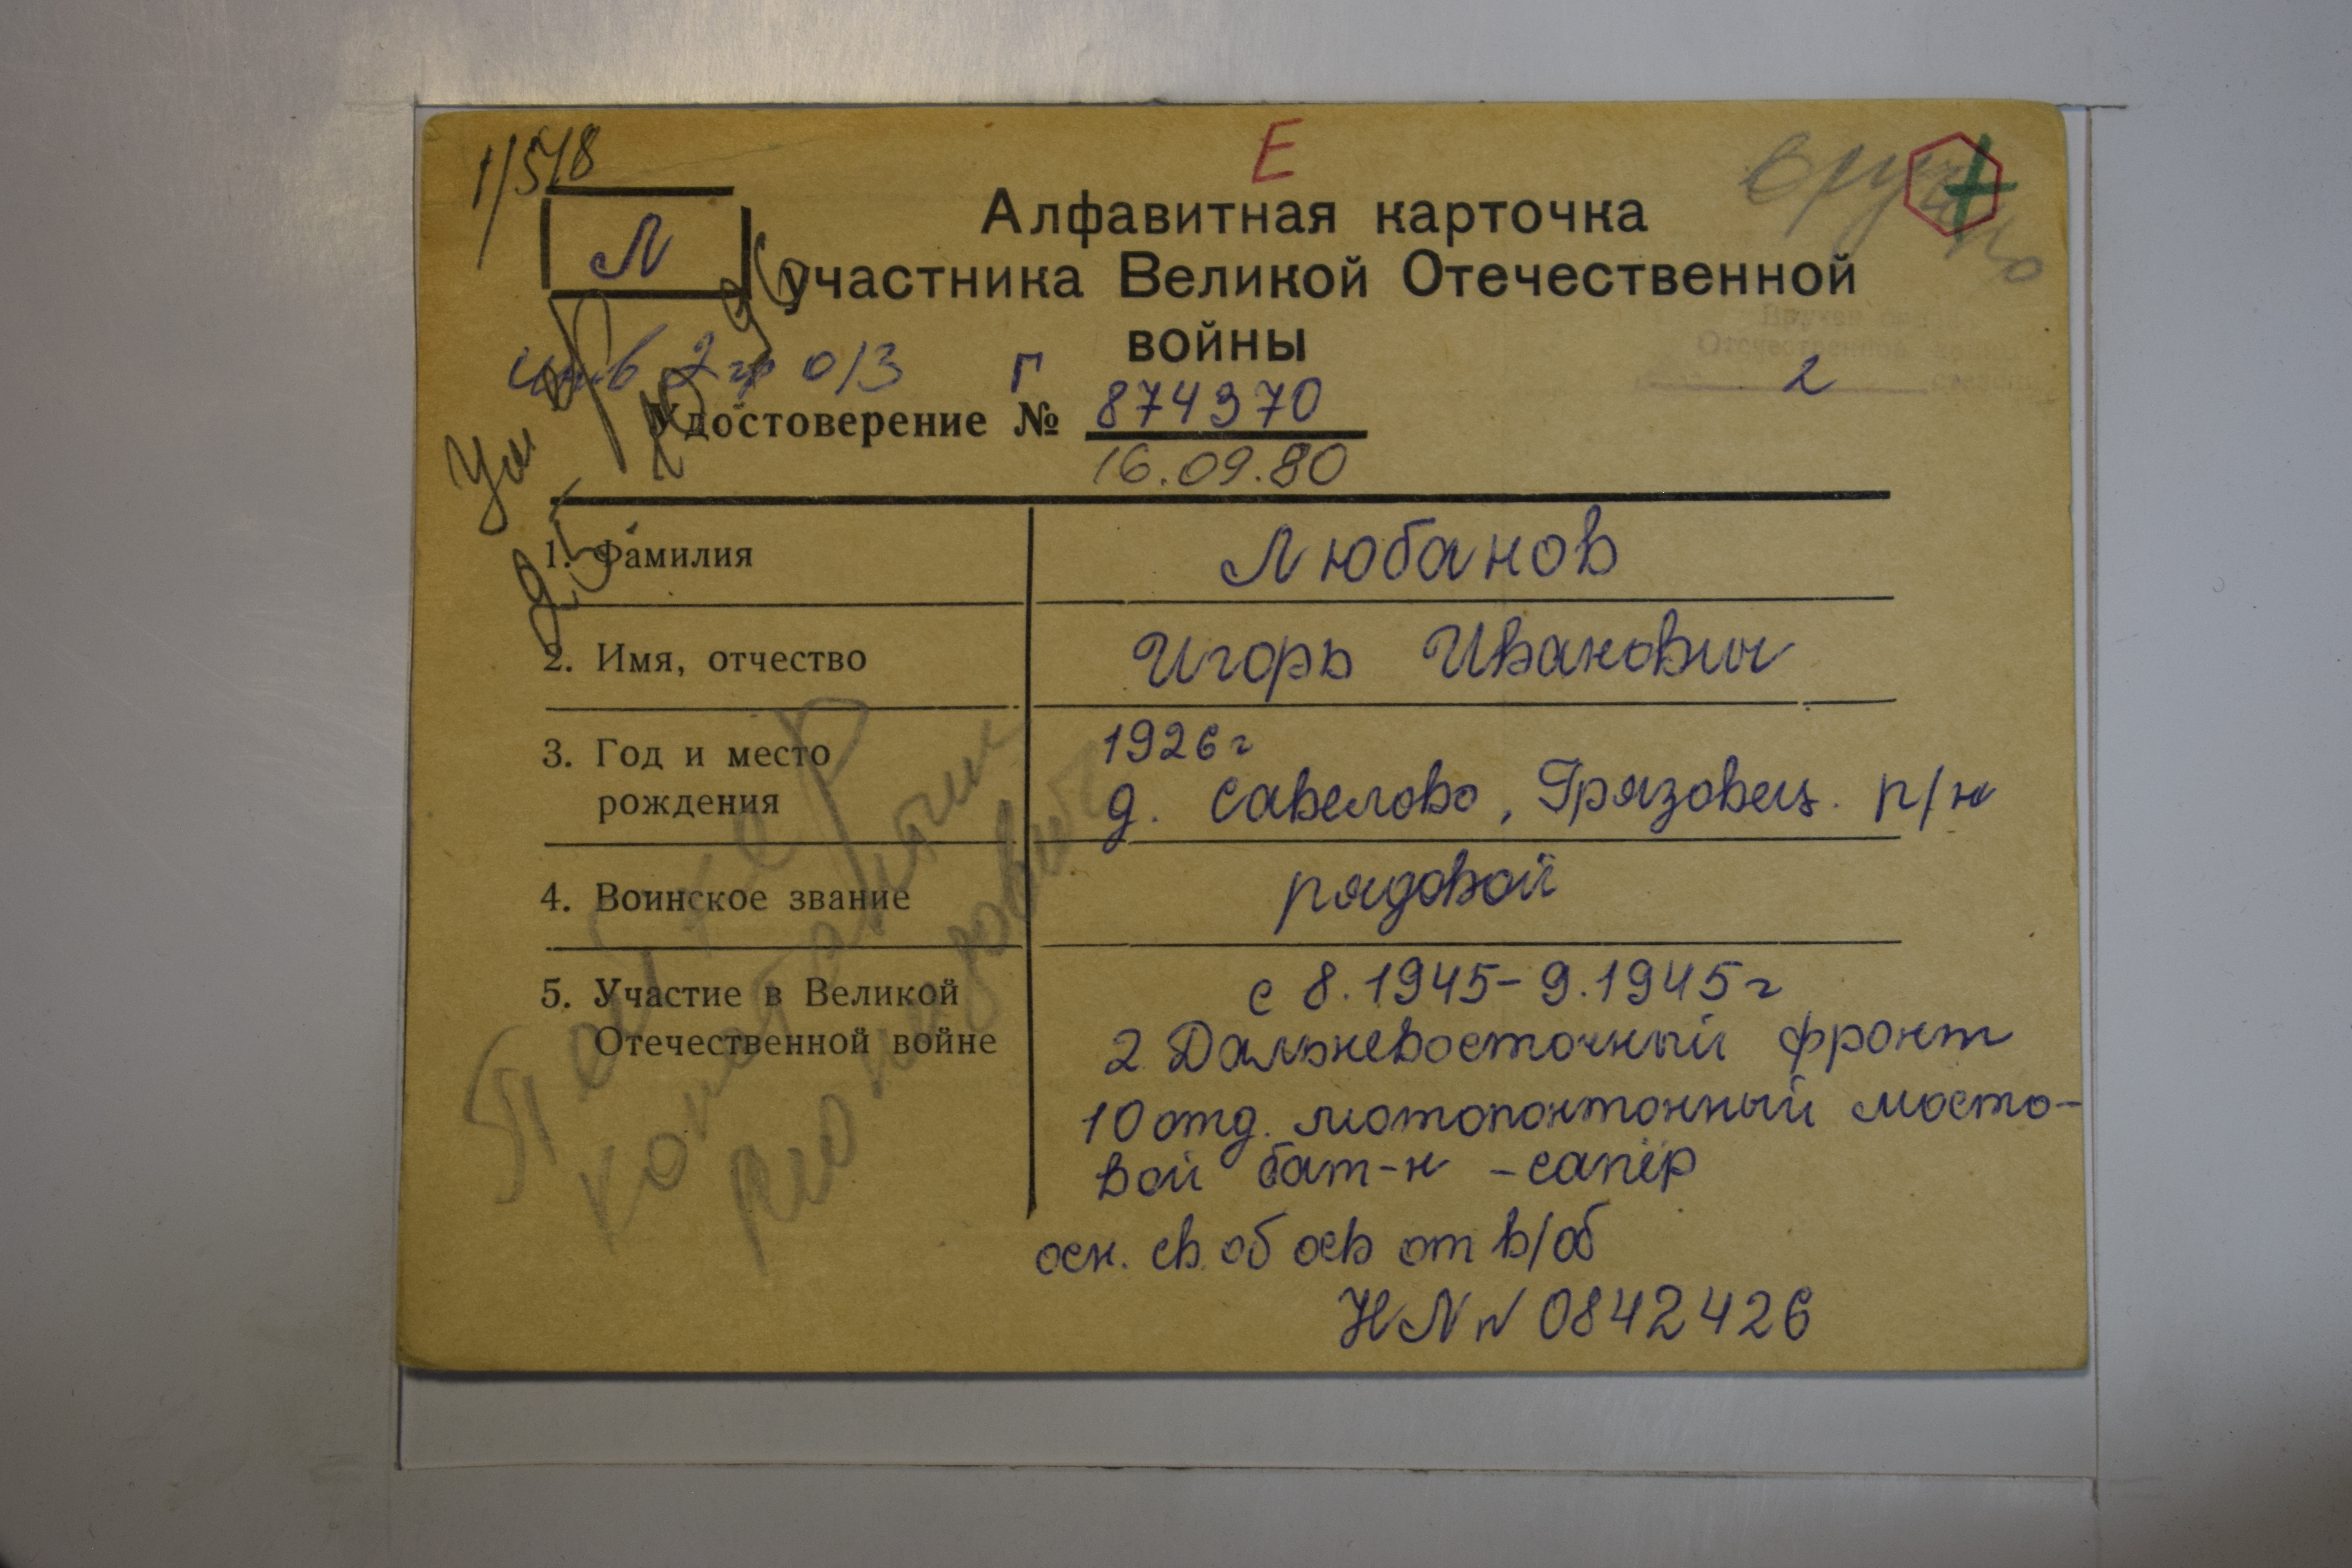 1/518
Е
вручено
Л
Алфавитная карточка
участника Великой Отечественной
войны
инв 2 гр о/з
Г
Вручен орден
Отечественной войны
2 степени
Удостоверение № 874370
16.09.80
Умер
25.10.96
1. Фамилия
Любанов
2. Имя, отчество
Игорь Иванович
3. Год и место
рождения
1926 г
д. Савелово, Грязовец. р/н
4. Воинское звание
рядовой
5. Участие в Великой
Отечественной войне
с 8.1945-9.1945 г
2 Дальневосточный фронт
10 отд. мотопонтонный мосто-
вой бат-н - сапёр
осн. св. об осв от в/об
НЛ № 0842426